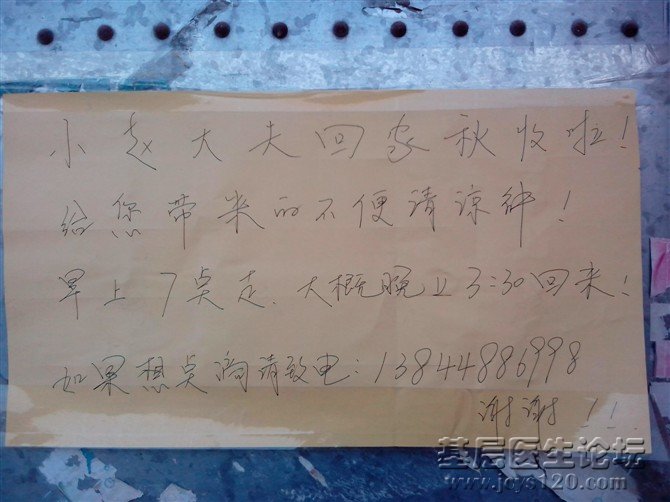 小赵大夫回家秋收啦!
给您带来的不便请谅解!
早上7点走.大概晚上3:30回来!
如果想点滴请致电:13844886998
谢谢!!!
基层医生论坛
www.jcys120.com